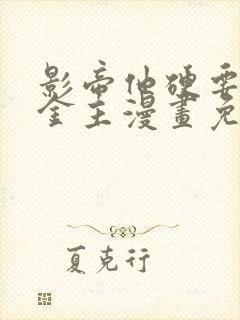 影帝他硬要
金主漫畫免
夏克行